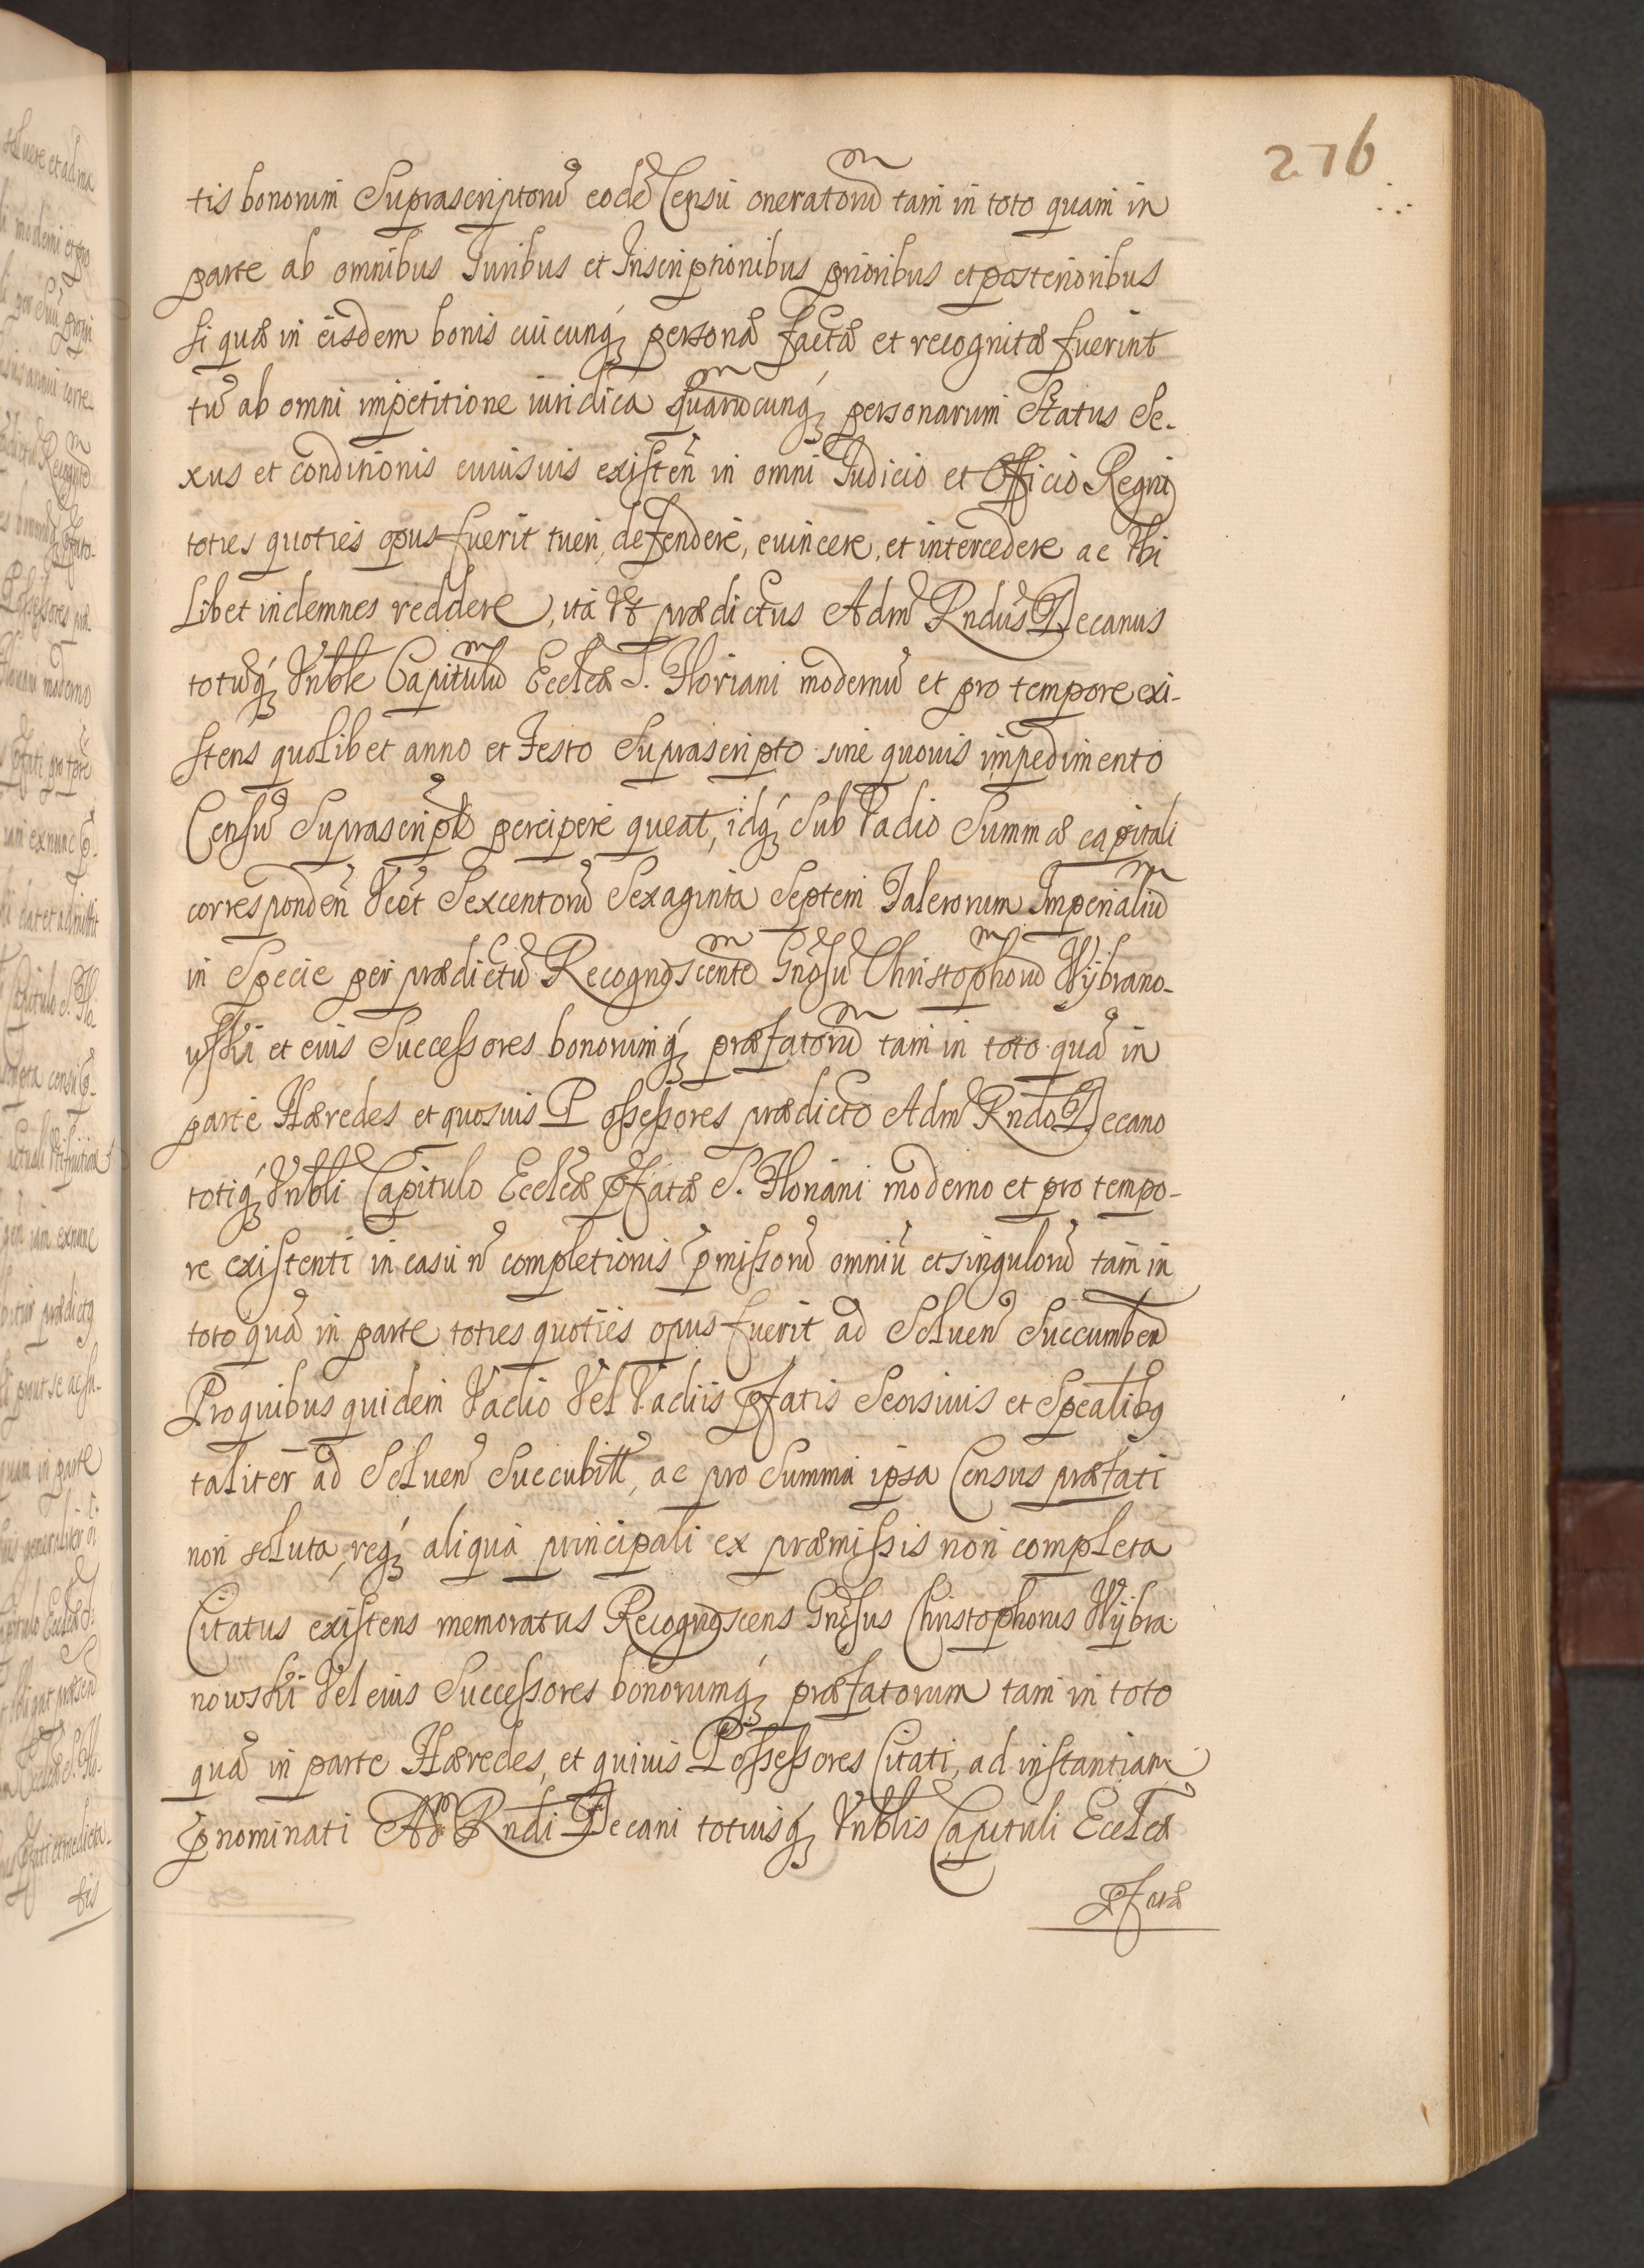 276
tis bonorum Suprascriptorũ eodẽ Censu oneratorũ tam in toto quam in
parte ab omnibus Iuribus et Inscriptionibus prioribus et posterioribus
si quæ in eisdem bonis cuicunq́ꝫ personæ factæ et recognitæ fuerint
tũ ab omni impetitione iuridica quarũcunq́ꝫ personarum Status Se-
xus et conditionis cuiusuis existeñ in omni Iudicio et Officio Regni
toties quoties opus fuerit tueri, defendere, euincere, et intercedere ac Vbi
Libet indemnes reddere, ita Vt prædictus Adm̃ Rndus Decanus
totũq́ꝫ Vnble Capitulũ Ecclæ S. Floriani modernũ et pro tempore exi-
stens quolibet anno et Festo Suprascripto sine quouis impedimento
Censũ Suprascriptũ percipere queat, idq́ꝫ Sub Vadio Summæ capitali
correspondeñ Vcet Sexcentorũ Sexaginta Septem Talerorum Imperialiũ
in Specie per prædictũ Recognoscentẽ Gnosũ Christophorũ Wÿbrano-
wski et eius Successores bonorumq́ꝫ præfatorũ tam in toto quã in
parte Hæredes et quosuis Possessores prædicto Adm̃ Rndo Decano
totiq́ꝫ Vnbli Capitulo Ecclæ p̃fatæ S. Floriani moderno et pro tempo-
re existenti in casu ñ completionis p̃missorũ omniũ et singulorũ tam in
toto quã in parte toties quoties opus fuerit ad Solueñ Succumbeñ
Pro quibus quidem Vadio Vel Vadiis p̃fatis Seorsiuis et Spealibꝯ
taliter ad Solueñ Succubitt, ac pro Summa ipsa Census præfati
non soluta, req́ꝫ aliqua principali ex præmissis non completa
Citatus existens memoratus Recognoscens Gnosus Christophorus Wÿbra
nowski Vel eius Successores bonorumq́ꝫ præfatorum tam in toto
quã in parte Hæredes, et quiuis Possessores Citati, ad instantiam
p̃nominati Ad. Rndi Decani totiusq́ꝫ Vnblis Capituli Ecclæ
p̃fatæ